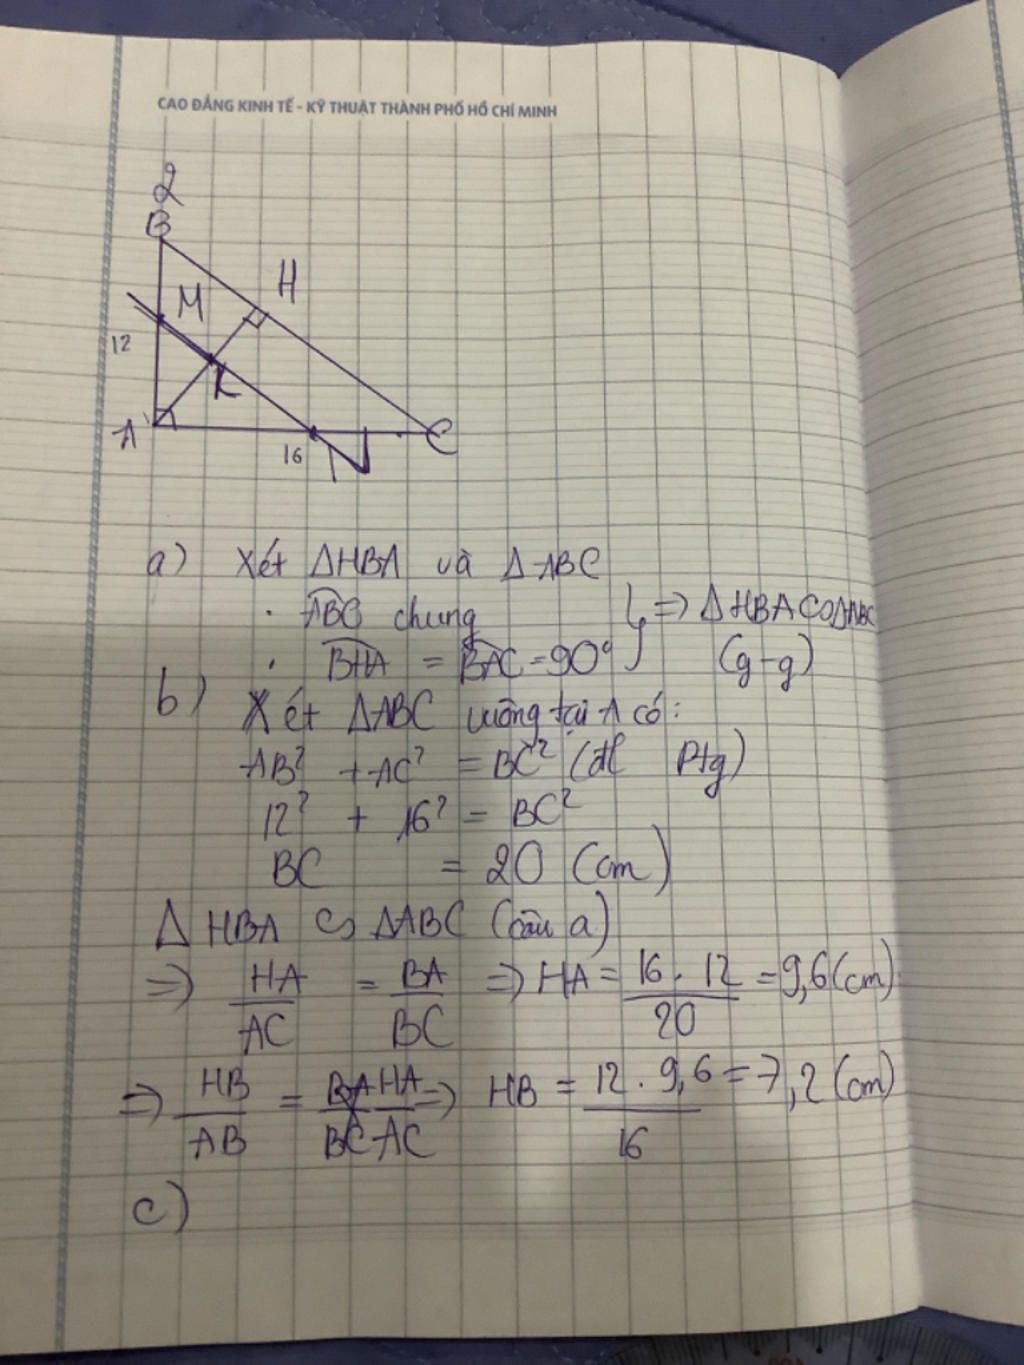 CAO ĐẲNG KINH TẾ - KỸ THUẬT THÀNH PHỐ HỒ CHÍ MINH
2
B
H
M
12
K
A
C
16
N
a) Xét ΔHBA và ΔABC
· ABC chung } => ΔHBA ∽ ΔABC
· BHA = BAC = 90° (g-g)
b) Xét ΔABC vuông tại A có:
AB² + AC² = BC² (đl Ptg)
12² + 16² = BC²
BC = 20 (cm)
ΔHBA ∽ ΔABC (câu a)
=> HA/AC = BA/BC => HA = 16.12/20 = 9,6 (cm)
=> HB/AB = HA/AC => HB = 12.9,6/16 = 7,2 (cm)
c)